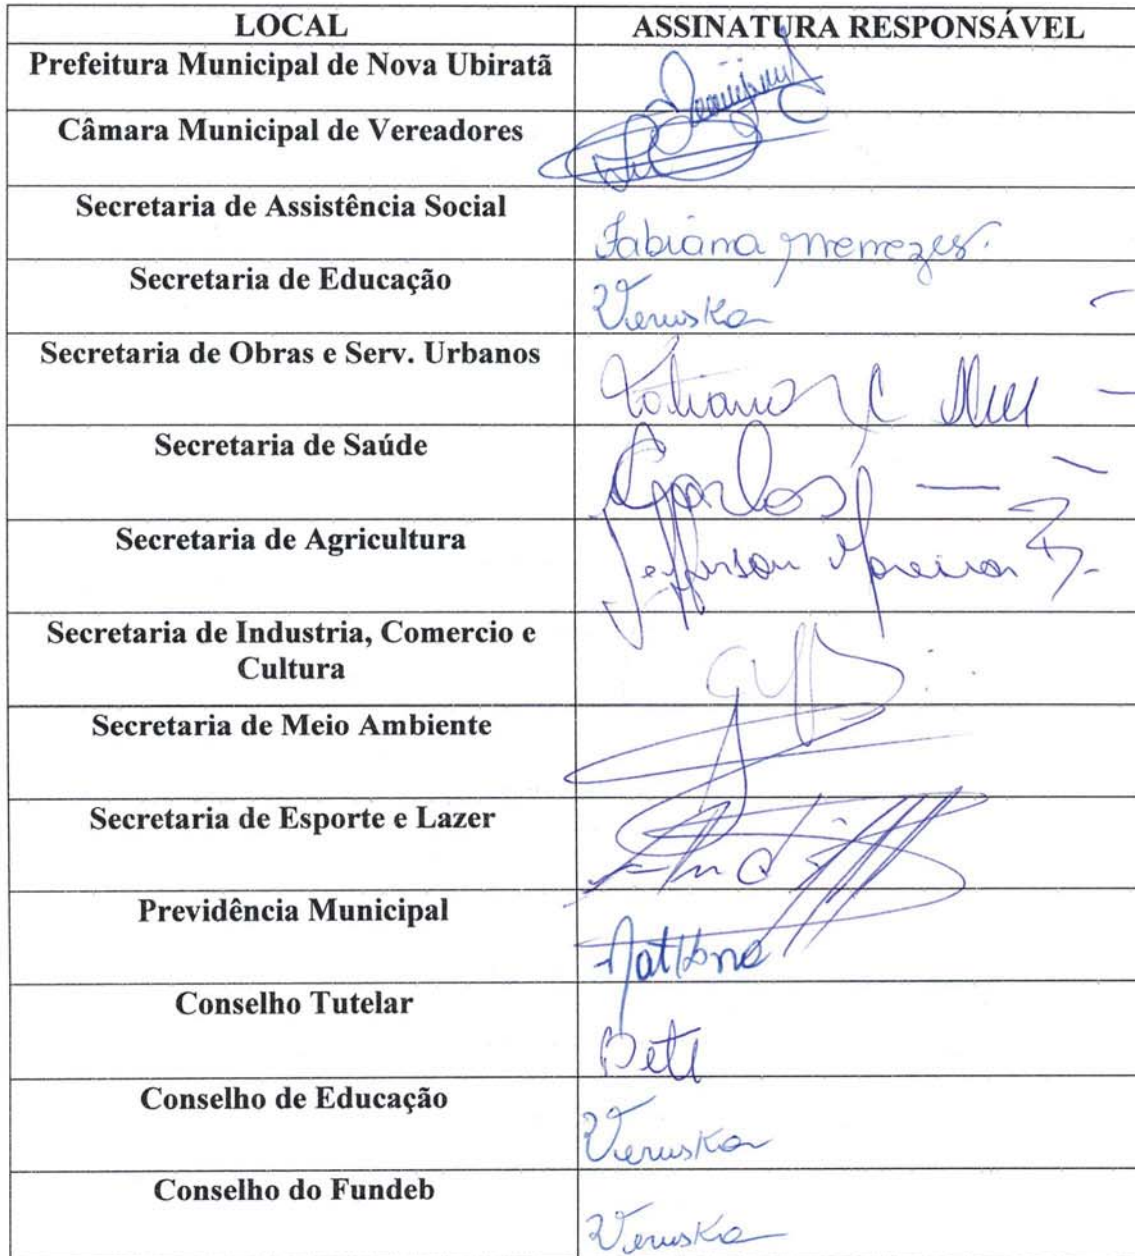 LOCAL ASSINATURA RESPONSÁVEL
Prefeitura Municipal de Nova Ubiratã
Câmara Municipal de Vereadores
Secretaria de Assistência Social Fabiana Menezes.
Secretaria de Educação Veruska
Secretaria de Obras e Serv. Urbanos
Secretaria de Saúde Carlos
Secretaria de Agricultura Jefferson Moreira
Secretaria de Industria, Comercio e
Cultura
Secretaria de Meio Ambiente
Secretaria de Esporte e Lazer
Previdência Municipal
Conselho Tutelar Bete
Conselho de Educação Veruska
Conselho do Fundeb Veruska